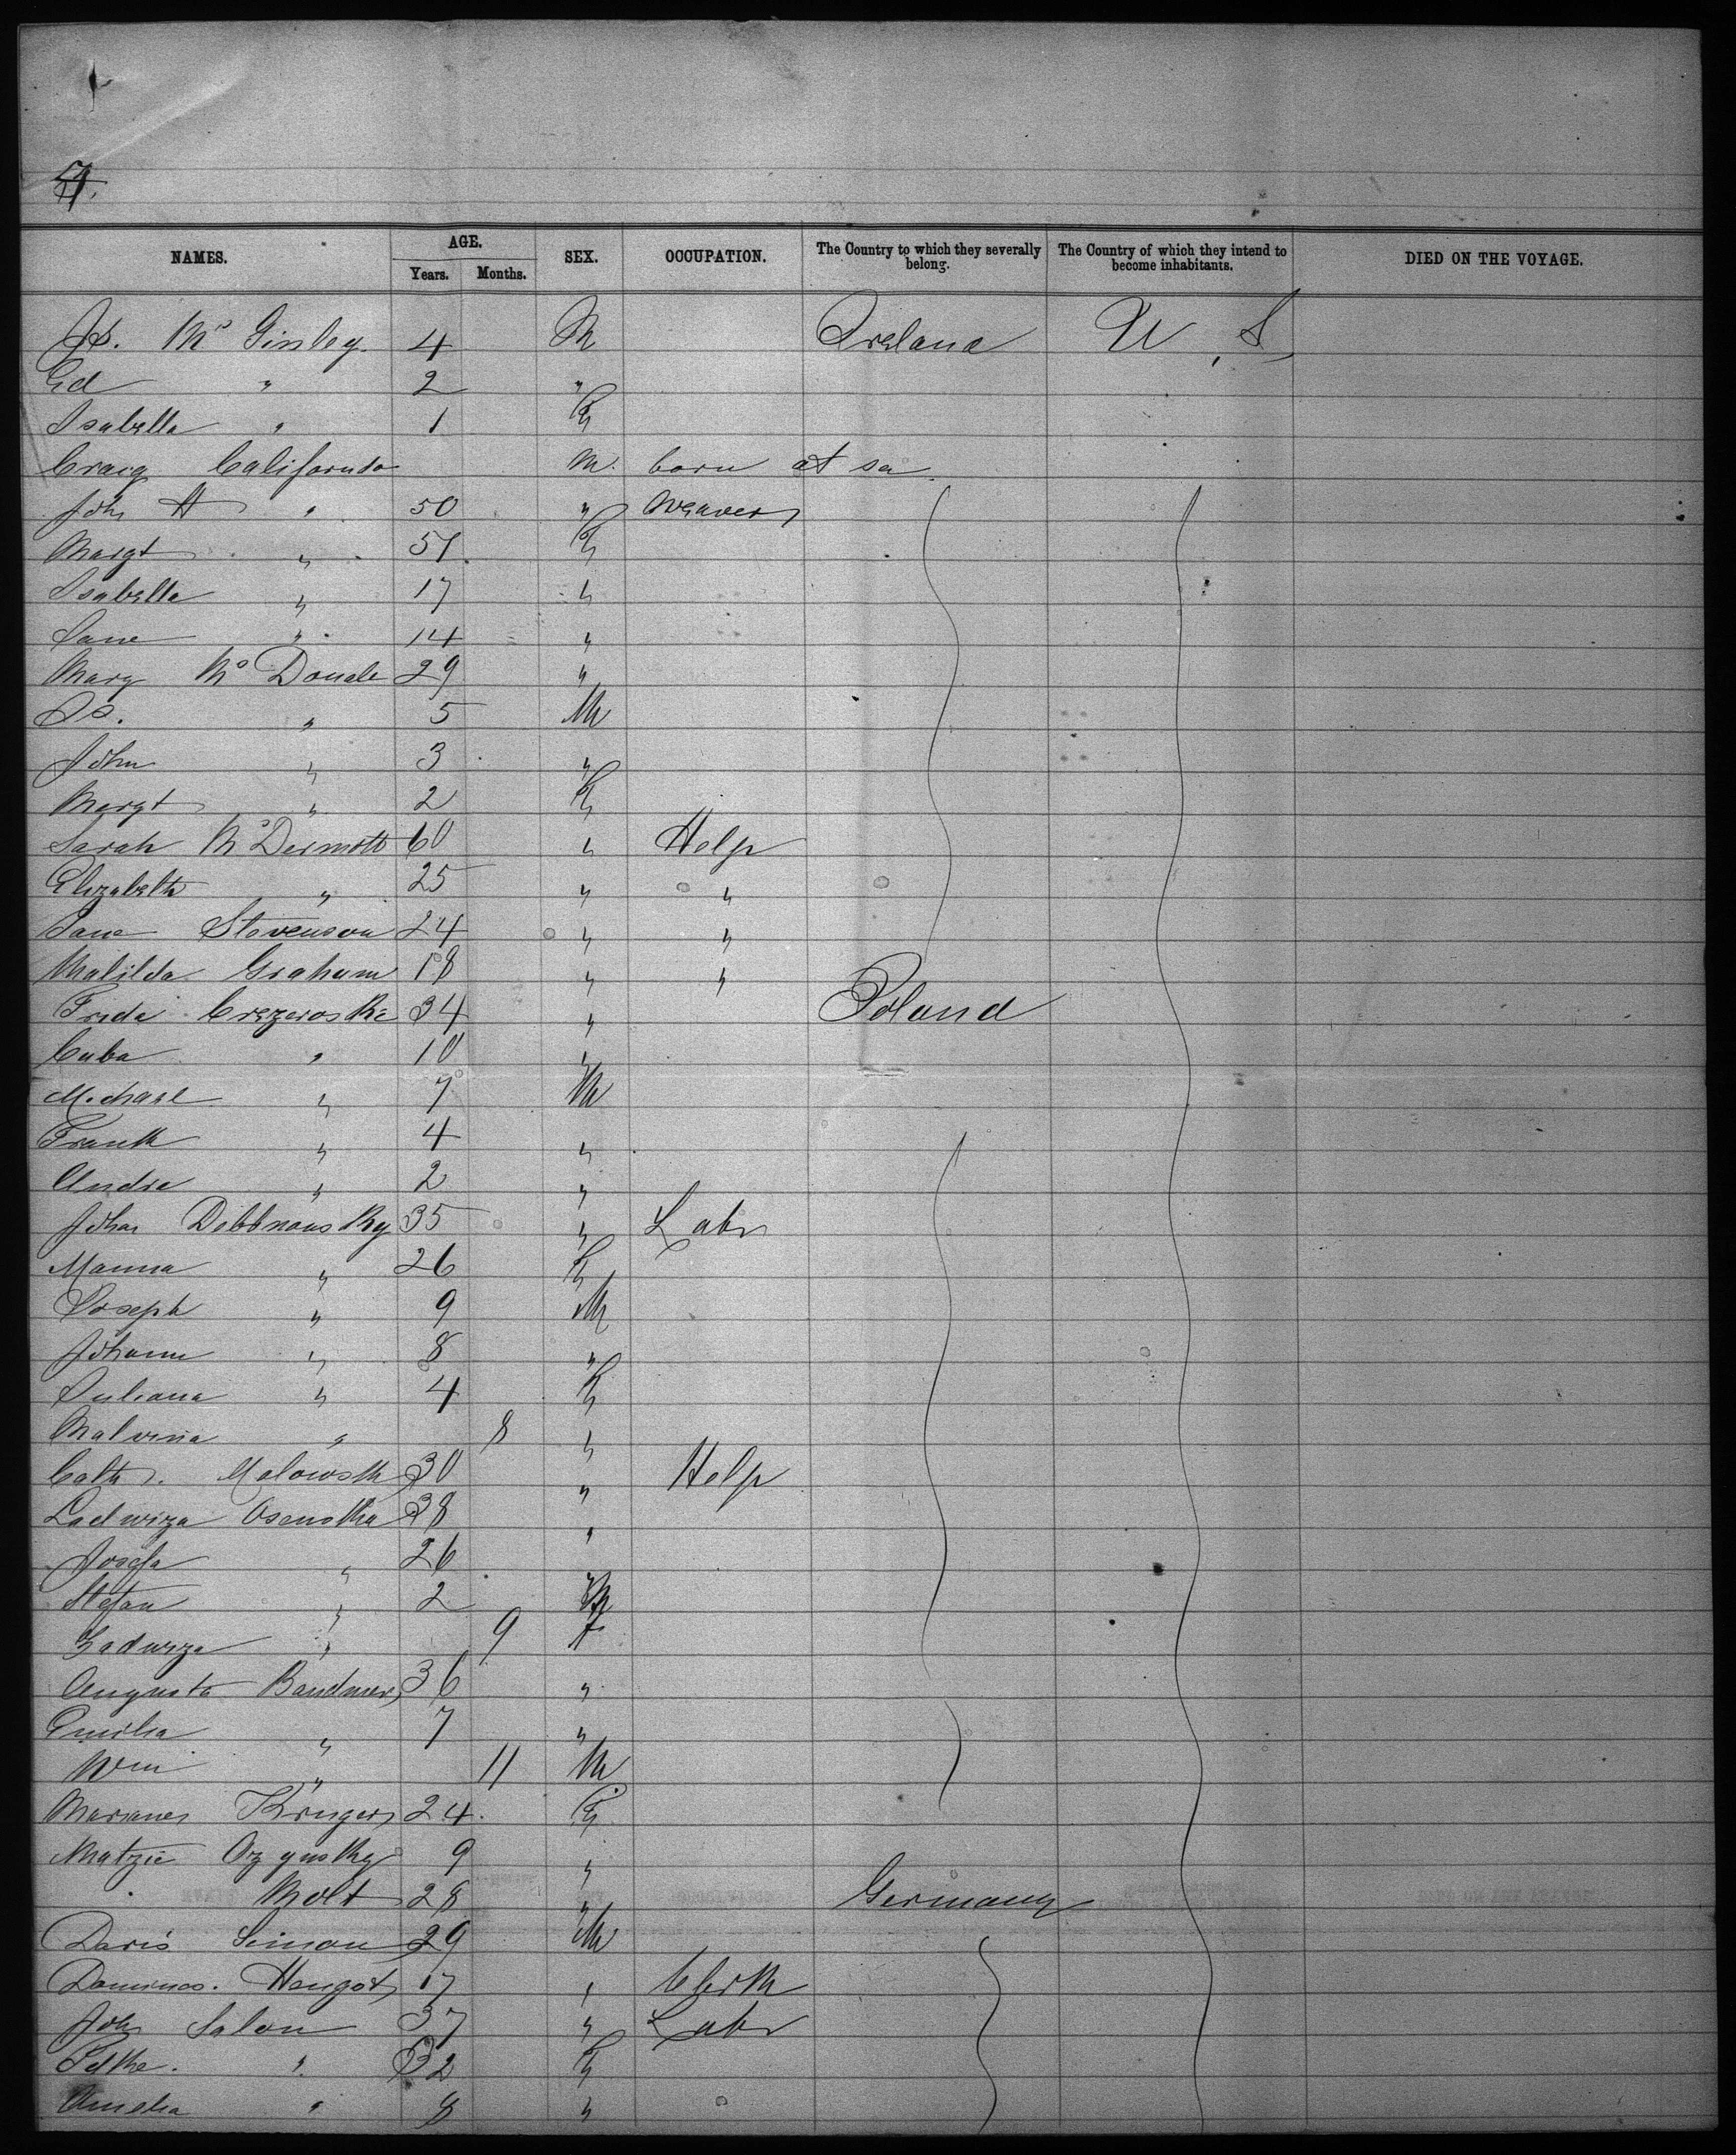 4.
NAMES. AGE. Years. Months. SEX. OCCUPATION. The Country to which they severally belong. The Country of which they intend to become inhabitants. DIED ON THE VOYAGE.
Js. Mc Ginley. 4 M Ireland U. S.
Ed " 2 "
Isabella " 1 F
Craig M. born at sea
John H " 50 " Weaver
Margt " 51 F
Isabella " 17 "
Jane " 14 "
Mary Mc Donald 29 "
Js. " 5 M
John " 3 "
Margt " 2 F
Sarah McDermott 60 " Help
Elizabeth " 25 " "
Jane Stevenson 24 " "
Matilda Graham 18 " "
Frida 34 " Poland
Cuba " 10 "
Michael " 7 M
Frank " 4 "
Andre " 2 "
John 35 " Labr
Manna " 26 F
Joseph " 9 M
Johann " 8 "
Juliana " 4 F
Malvina " 8 "
Cath. Malowsk 30 " Help
Ladwiza 38 "
Josefa " 26 "
Stefan " 2 M
Ladwiza " 9 F
Augusta 36 "
Emilia " 7 "
Wm " 11 M
Kruger 24. F
9 "
Molt 28 " Germany
Simon 29 M
17 " Clerk
Joh Salon 37 " Labr
" 32 F
Amelia " 8 "